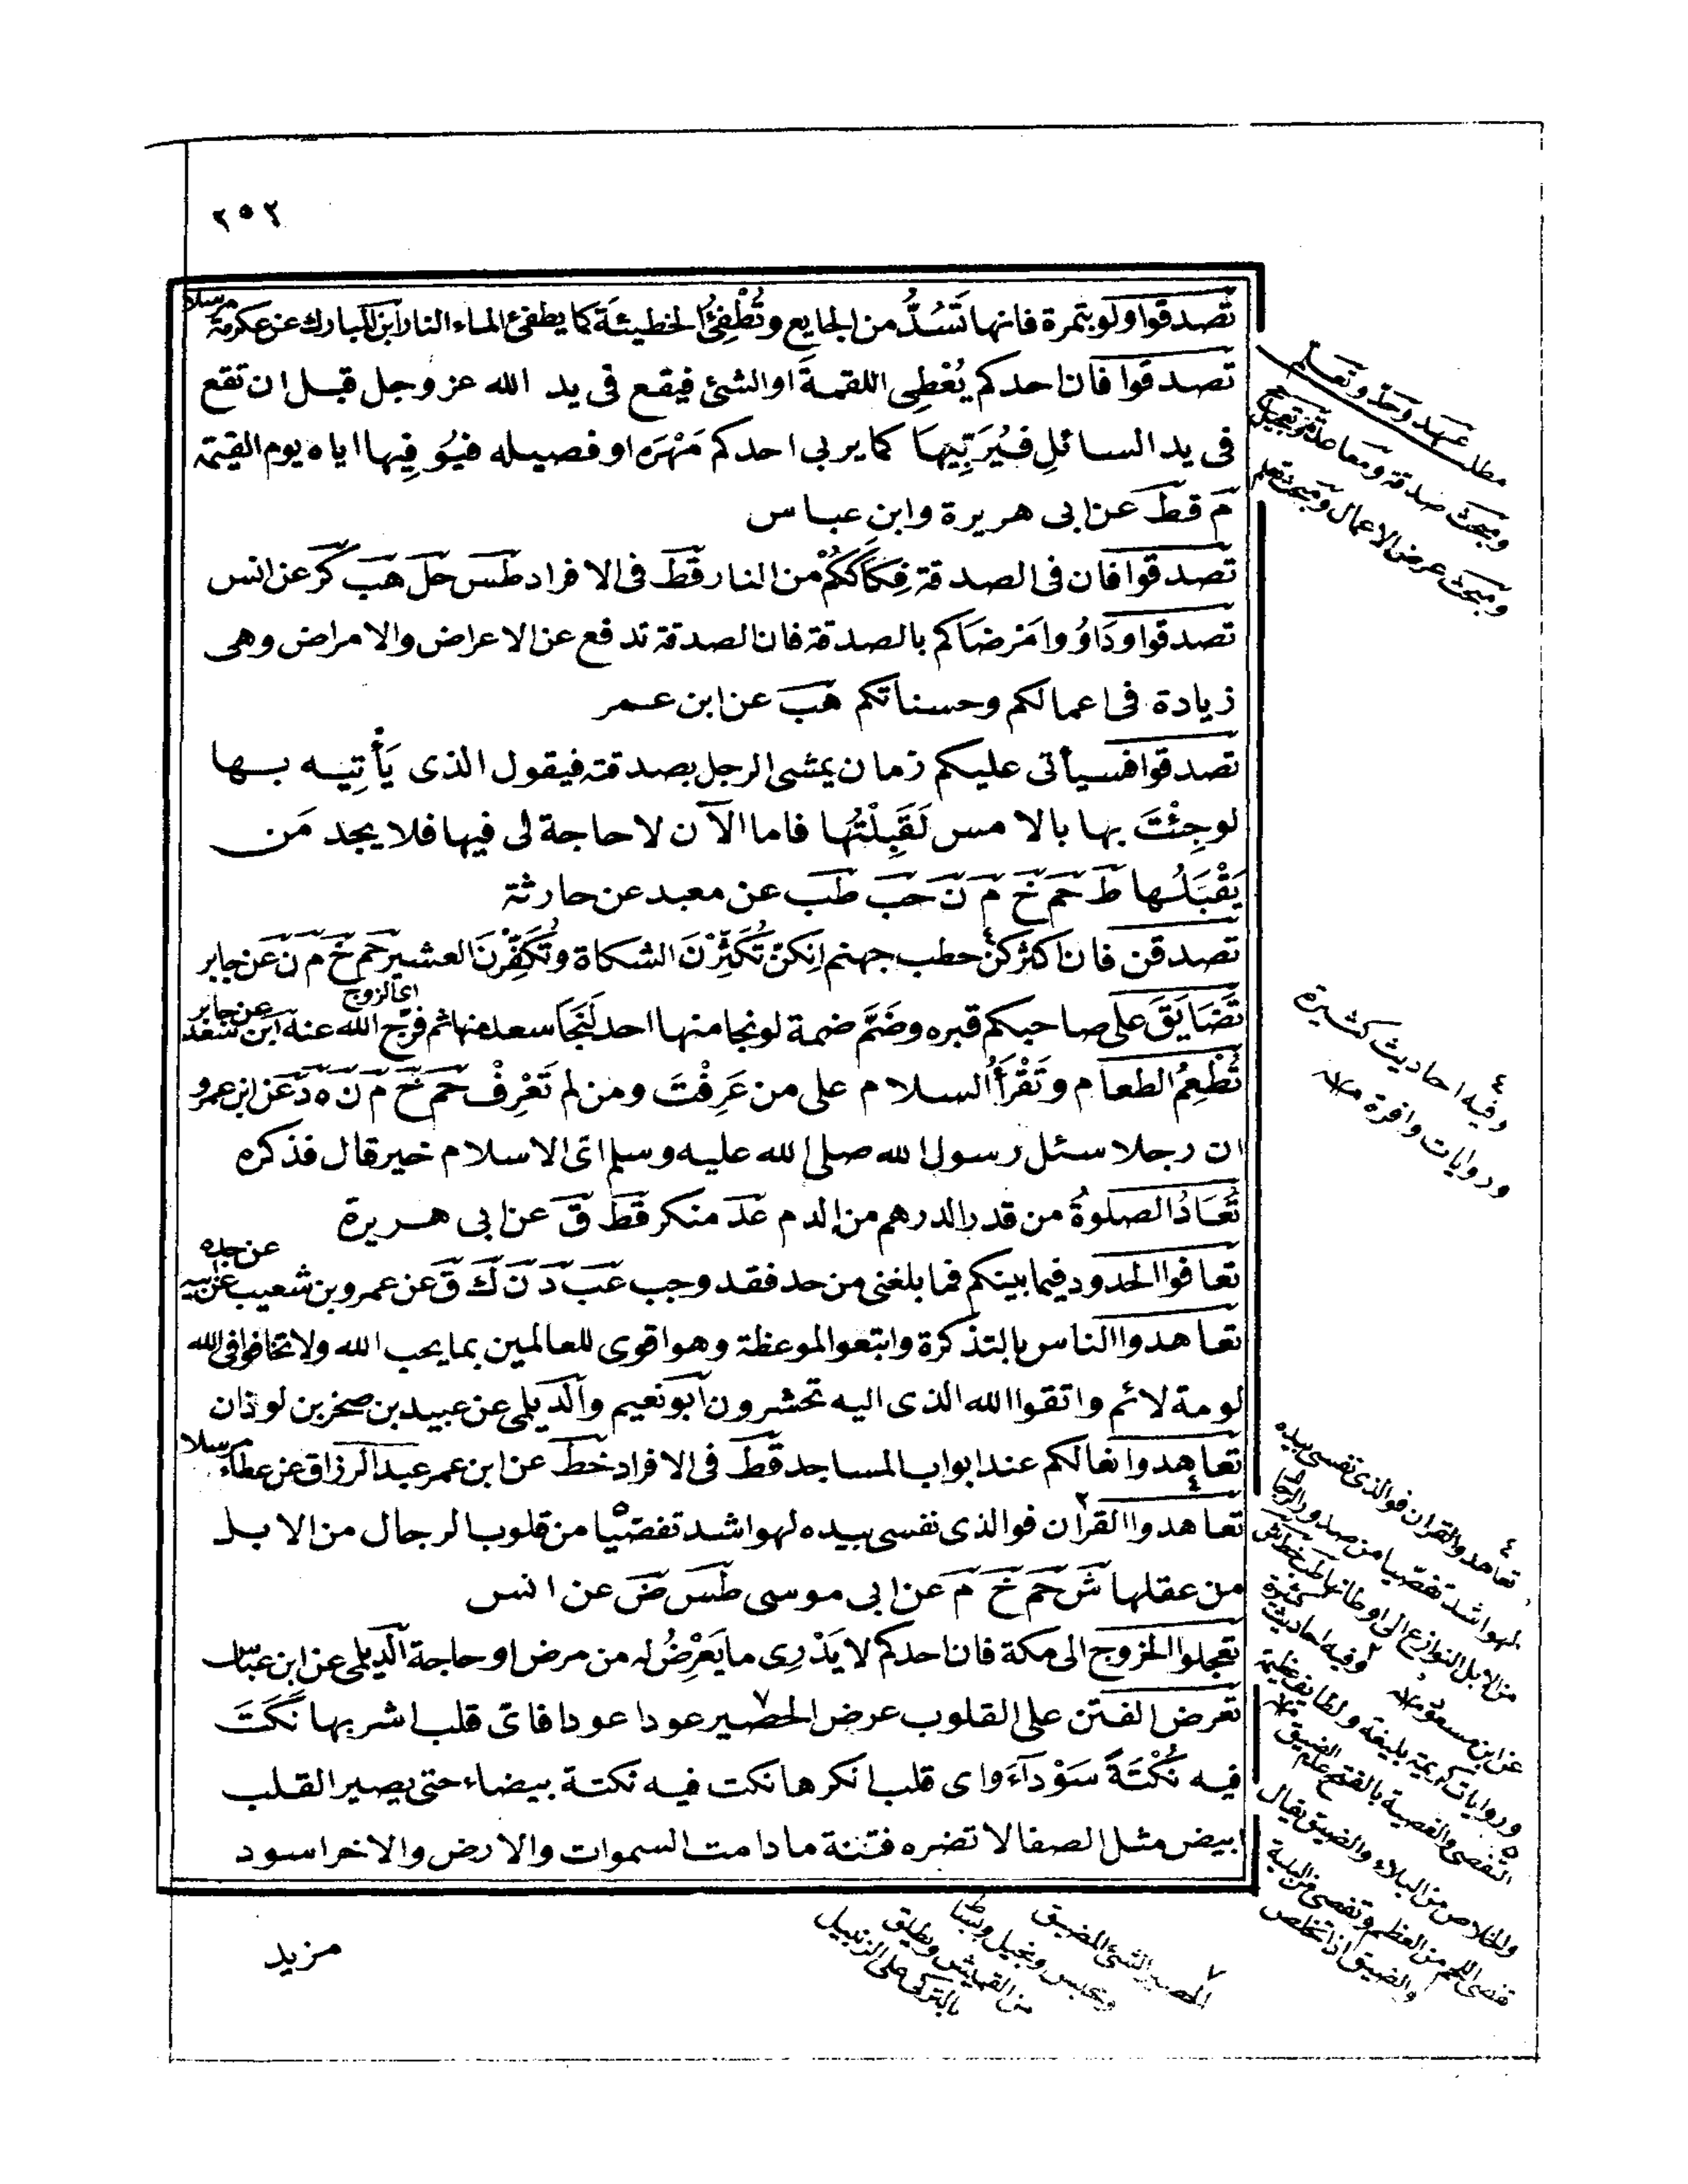 ٢٥٢
تصدقوا ولو بتمرة فانها تَسُدُّ من الجايع وتُطْفِئُ الخطيئة كما يطفئ الماء النار ابن المبارك عن عكرمة مرسلا
تصدقوا فان احدكم يُعْطِى اللقمةَ او الشئ فيقع فى يد الله عز وجل قبل ان تقع
فى يد السائلِ فَيُرَبِّيهَا كما يربى احدكم مَهْرَه او فصيله فيُوَفِيها اياه يوم القيمة
م قط عن ابى هريرة وابن عباس
تصدقوا فان فى الصدقة فِكَاكَكُمْ من النار قط فى الافراد طس حل هب كر عن انس
تصدقوا ودَاوُوا مَرْضَاكم بالصدقة فان الصدقة تدفع عن الاعراض والامراض وهى
زيادة فى اعمالكم وحسناتكم هب عن ابن عمر
تصدقوا فسيأتى عليكم زمان يمشى الرجل بصدقته فيقول الذى يَأْتِيه بها
لو جِئْتَ بها بالامس لَقَبِلْتُهَا فاما الآن لا حاجة لى فيها فلا يجد مَن
يَقْبَلُها ط حم خ م ن حب طب عن معبد عن حارثة
تصدقن فان اكثركنّ حطب جهنم اِنكنّ تُكَثِّرْنَ الشكاة وتُكَفِّرْنَ العشير حم خ م ن عن جابر
اى الزوج
تَضَايَقَ على صاحبكم قبره وضَمَّ ضمة لو نجا منها احد لَنَجَا سعد منها ثم فرّج الله عنه ابن سعد عن جابر
تُطْعِمُ الطعام وتَقْرَأُ السلام على من عَرِفْتَ ومن لم تَعْرِفْ حم خ م ن ه د عن ابن عمرو
ان رجلا سئل رسول الله صلى الله عليه وسلم اى الاسلام خير قال فذكره
تُعَادُ الصلوةُ من قدر الدرهم من الدم عد منكر قط ق عن ابى هريرة
تعافوا الحدود فيما بينكم فما بلغنى من حد فقد وجب عب د ن ك ق عن عمرو بن شعيب عن ابيه عن جده
تعاهدوا الناس بالتذكرة وابتعوا الموعظة وهو اقوى للعالمين بما يحب الله ولا تخافوا فى الله
لومة لائم واتقوا الله الذى اليه تحشرون ابو نعيم والديلمى عن عبيد بن صخر بن لوذان
تعاهدوا نعالكم عند ابواب المساجد قط فى الافراد خط عن ابن عمر عبد الرزاق عن عطاء مرسلا
تعاهدوا القرآن فوالذى نفسى بيده لهو اشد تفصّيا من قلوب الرجال من الابل
من عقلها ش حم خ م عن ابى موسى طس ض عن انس
تعجلوا الخروج الى مكة فان احدكم لا يَدْرِى ما يَعْرِضُ له من مرض او حاجة الديلمى عن ابن عباس
تعرض الفتن على القلوب عرض الحصير عودا عودا فاى قلب اشربها نَكَتَ
فيه نُكْتَةً سَوْدآءَ واى قلب انكرها نكت فيه نكتة بيضاء حتى يصير القلب
ابيض مثل الصفا لا تضره فتنة ما دامت السموات والارض والاخر اسود
مزيد
مطلب عهد وحد وتعلم
ومبحث صدقة ومعا
ومبحث عرض الاعمال ومبحث تعلم
٤
وفيه احاديث كثيرة
وروايات وافرة
٤
تعاهدوا القرآن فوالذى نفسى بيده
لهو اشد تفصيا من صدور الرجال
من الابل النوازع الى اوطانها طب خط كر
عن ابن مسعود
وفيه احاديث كثيرة
وروايات كريمة بليغة ولطايف عظيمة
٥
التفصى والفصية بالفتح
والخلاص من البلاء والضيق يقال
فصى اللحم من العظم وتفصى من البلية
والضيق اذا تخلص
٧
الحصير الشئ المضيق